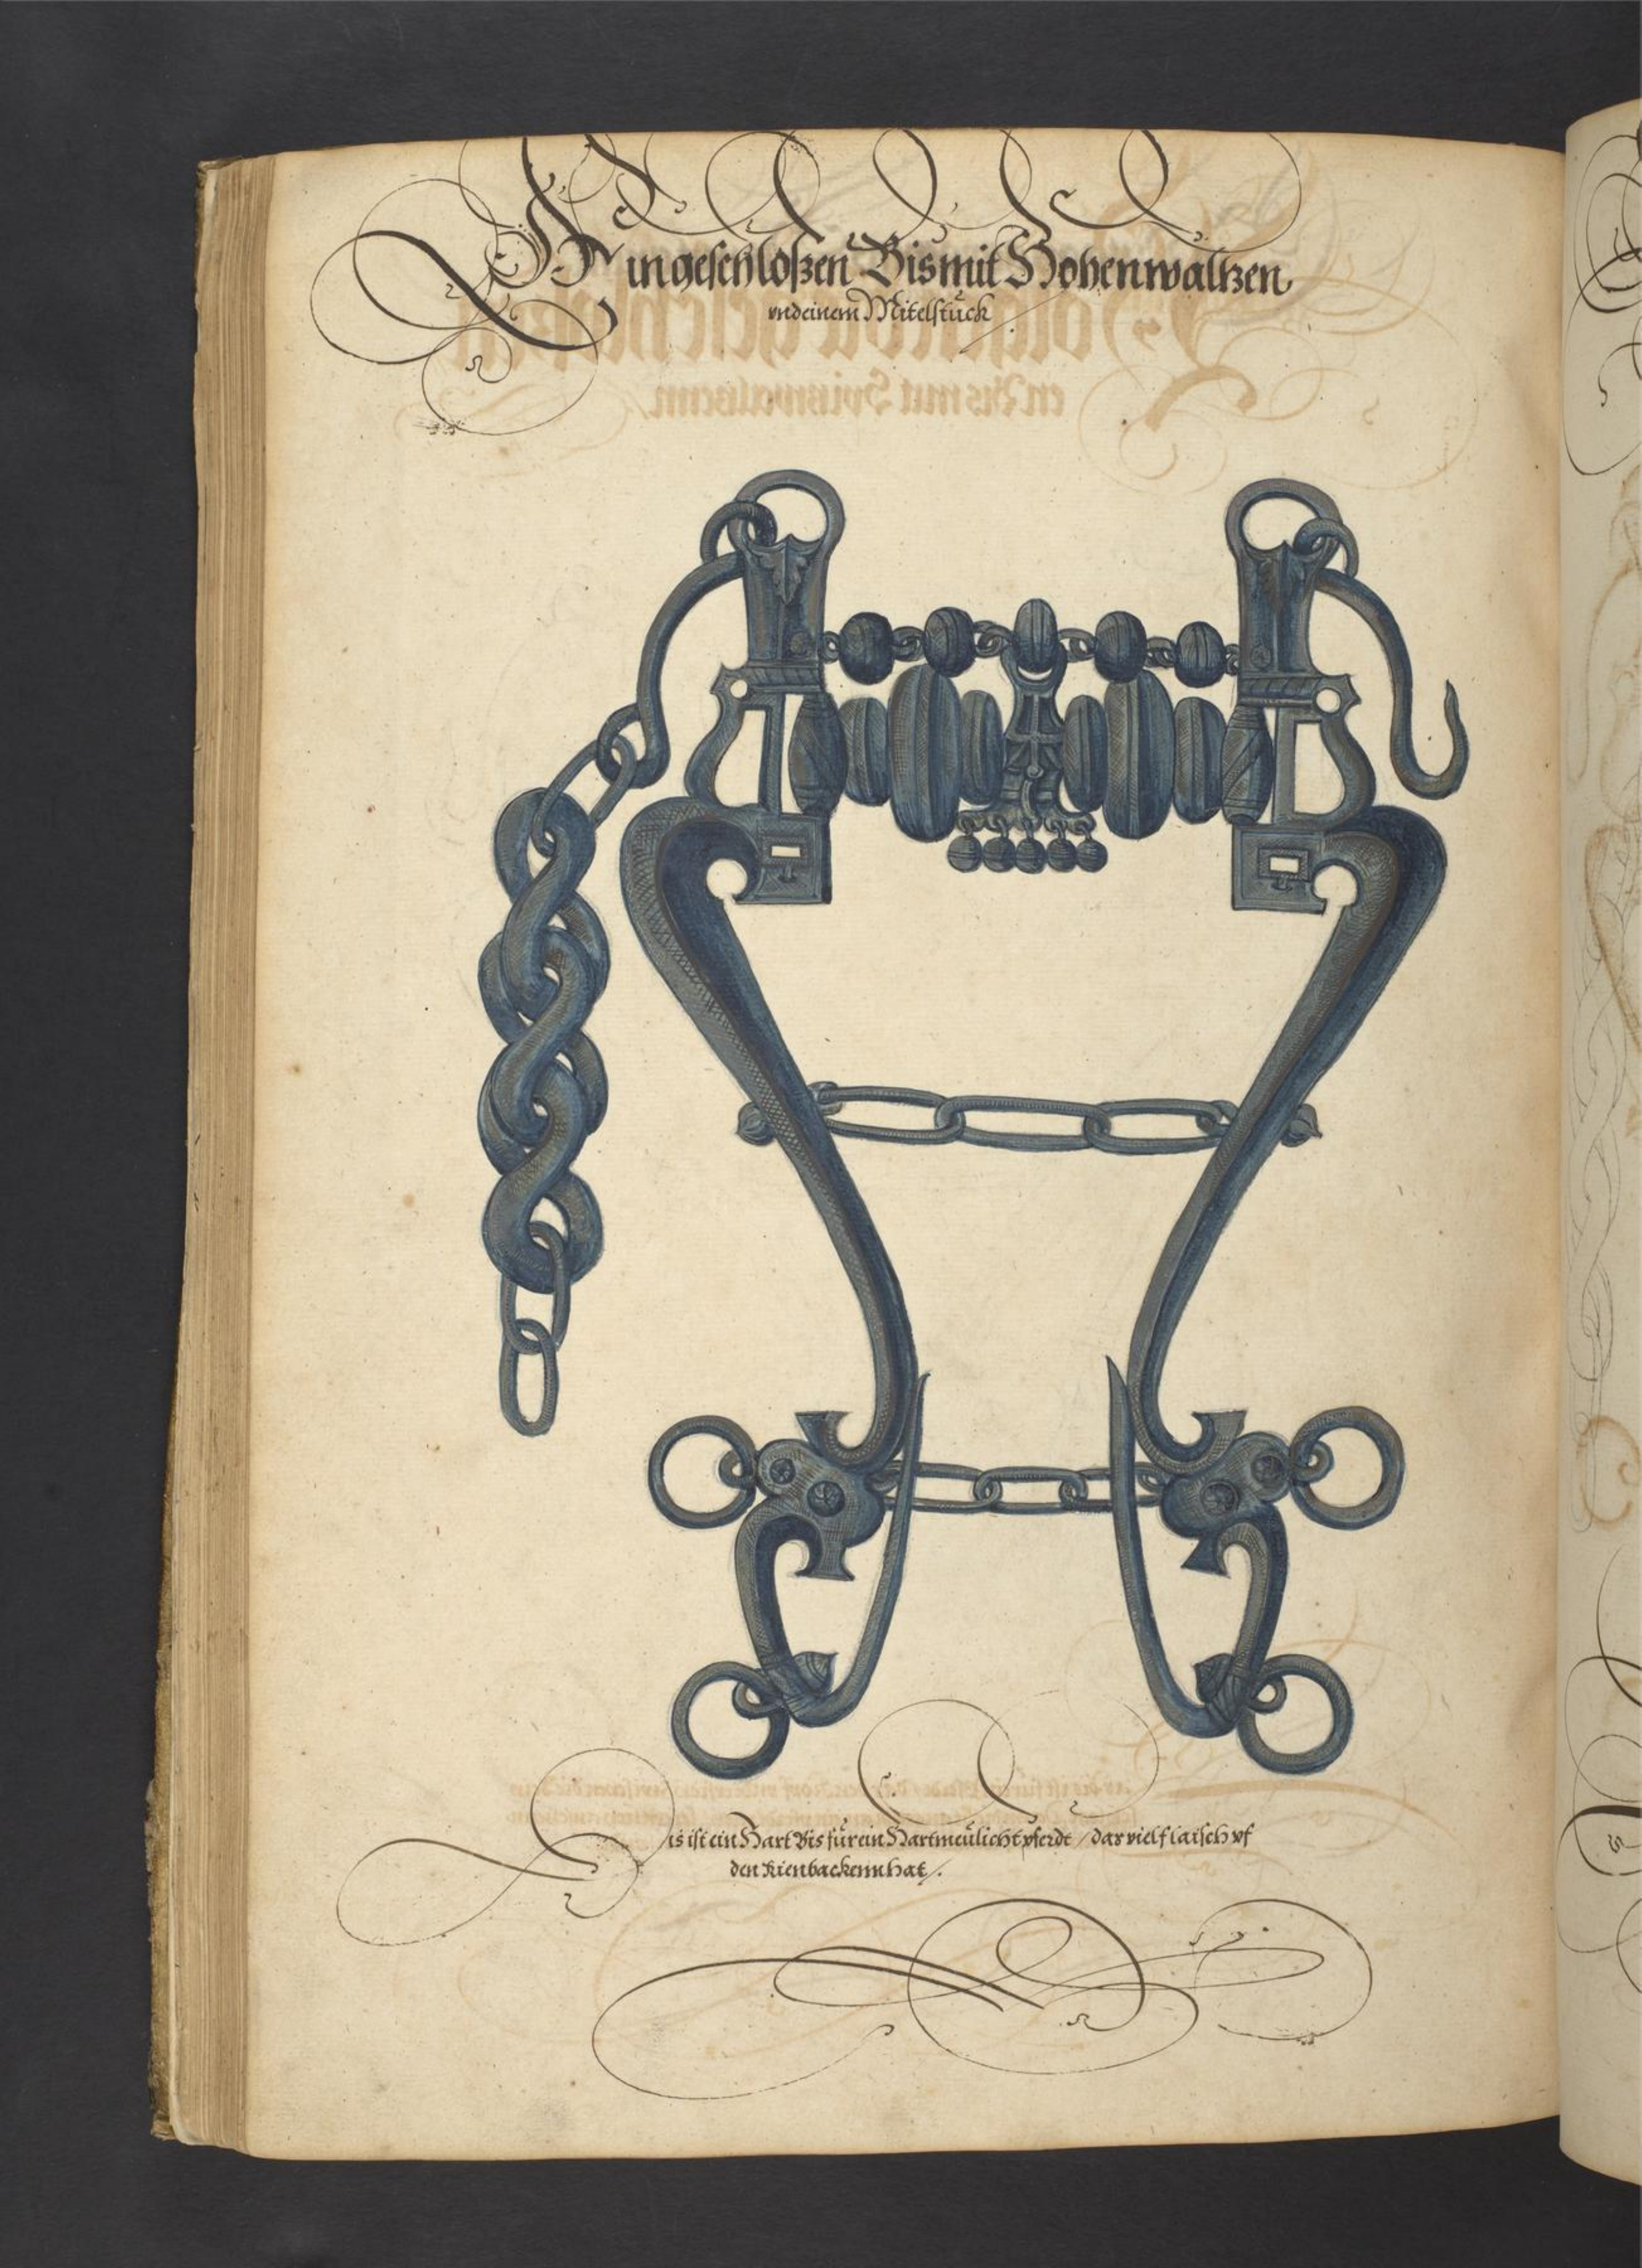 Ein geschloszen Bis mit Hohen waltzen
vnd einem Mitelstück
Dis ist ein Hart Bis für ein Hartmeülicht pferdt / das viel flaisch vf
den Kienbackenn hat /.